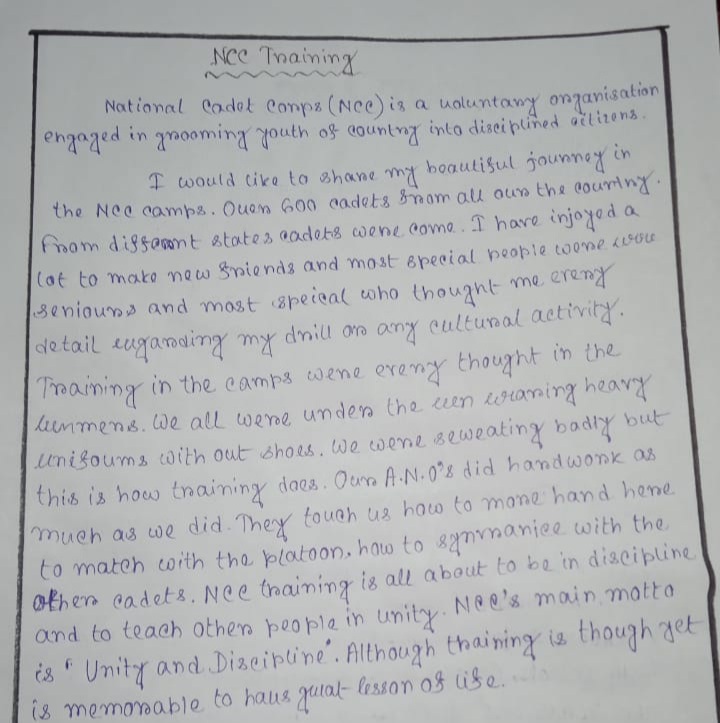 NCC Training
National Cadet Conps (NCC) is a voluntary organisation
engaged in grooming youth of country into disciplined citizens.
I would like to share my beautiful journey in
the NCC camps. Over 600 cadets from all our the country.
From different states cadets were come. I have injoyed a
lot to make new friends and most special people were
seniours and most speical who thought me every
detail my drill or any cultural activity.
Training in the camps were every thought in the
We all were under the wearing heavy
unifoums with out shoes. We were seweating badly but
this is how training does. Our A.N.O's did handwork as
much as we did. They touch us how to more hand here
to match with the platoon. how to with the
other cadets. NCC training is all about to be in discipline
and to teach other people in unity. NCC's main motto
is "Unity and Discipline". Although training is though yet
is memorable to lesson of life.